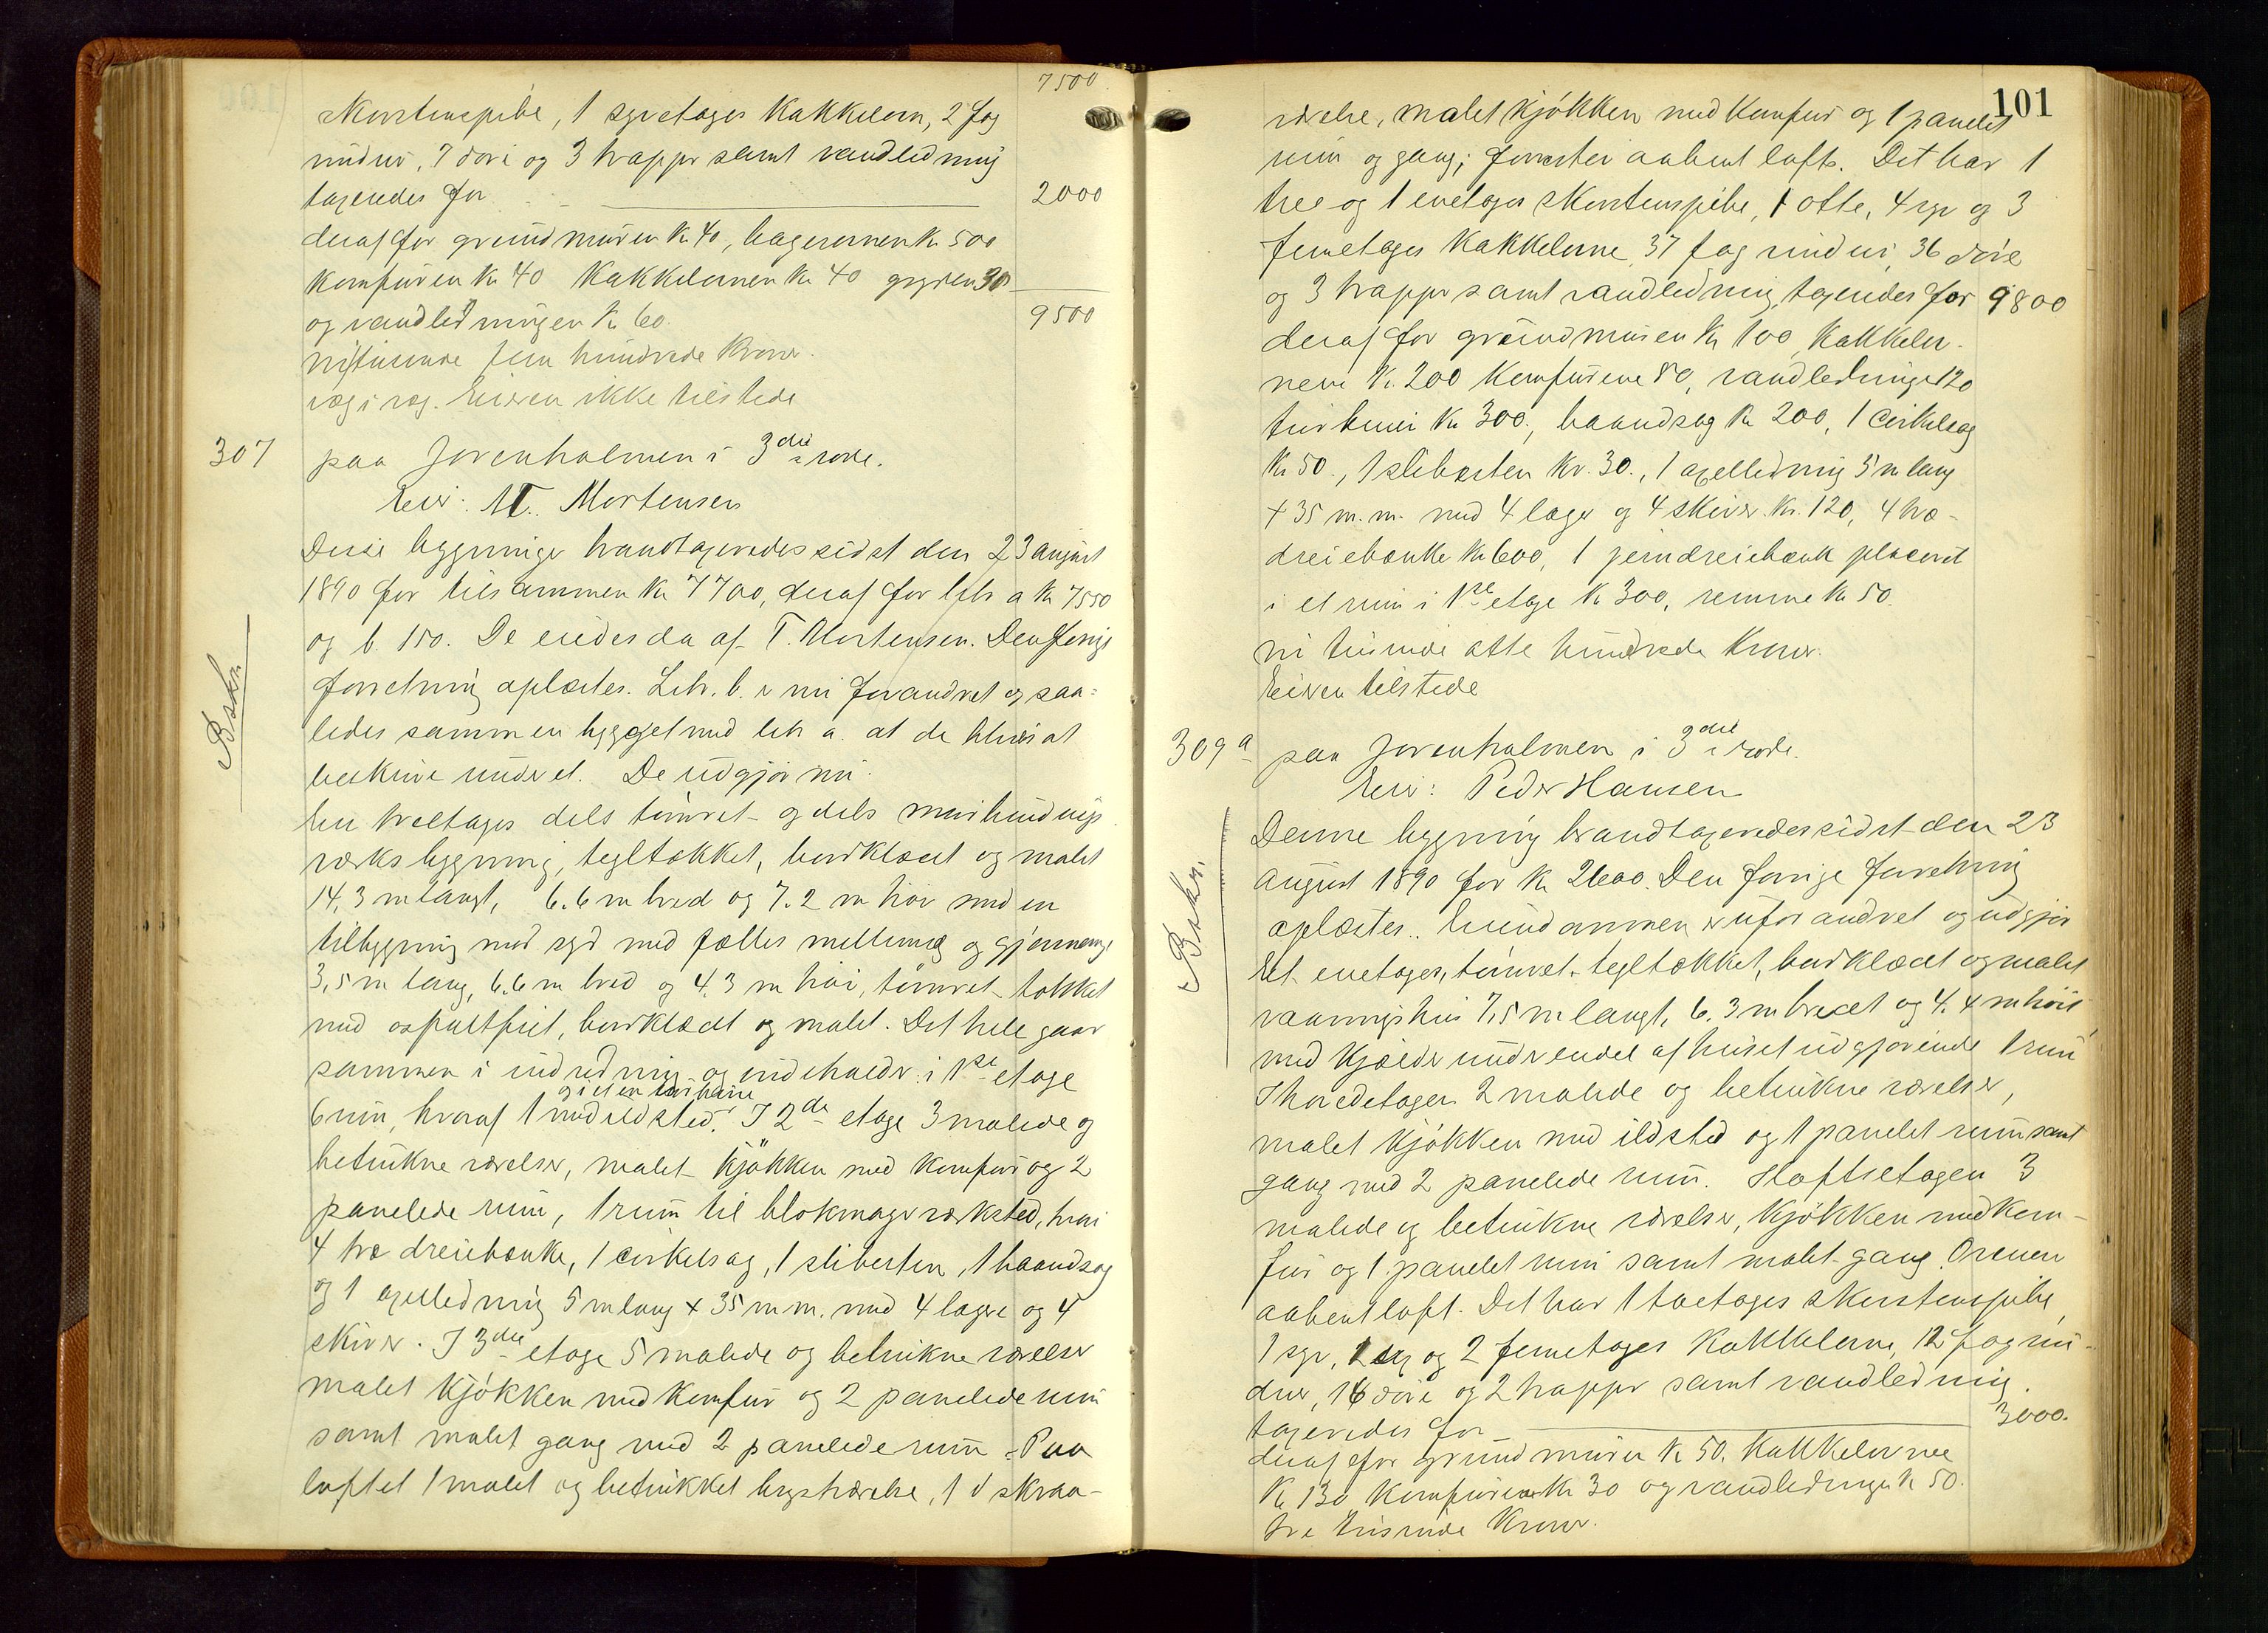 7500
skorstenspibe, 1 syvetages kakkelovn, 2 fag
vinduer, 7 døre og 3 trapper samt vandledning
taxeredes for 2000
deraf for grundmuren Kr 40, bagerovnen Kr 500
komfuren Kr 40 kakkelovnen Kr 40 gryden 30
og vandledningen Kr 60. 9500
nitusende fem hundrede Kroner.
Eieren ikke tilstede
307 paa Jovenholmen i 3die rode.
Eier: M. T. Mortensen
Disse bygninger brandtaxeredes sidst den 23 august
1890 for tilsammen Kr 7700, deraf for litr a Kr 7550
og b. 150. De eiedes da af T. Mortensen. Den forrige
forretning oplæstes. Litr. b. er nu forandret og saa-
ledes sammenbygget med litr a. at de blir at
beskrive under et. De udgjør nu:
Beskr.
En treetages dels tømret og dels murbindings
verks bygning, tegltækket, bordklædt og malet
14,3 m langt, 6.6 m bred og 7.2 m høi med en
tilbygning mod syd med fælles mellemvæg og gjennemg
3,5 m lang, 6.6 m bred og 4.3 m høi, tømret tækket
med asfaltfilt, bordklædt og malet. Det hele gaar
sammen i indredning og indeholder: i 1ste etage
6 rum, hvoraf 1 med ildsted. I 2de etage 3 malede og
betrukne værelser, malet kjøkken med komfur og 2
panelede rum, 1 rum til blokmagerverksted, hvori
4 træ dreiebænke, 1 cirkelsag, 1 slibesten, 1 baandsag
og 1 axelledning 5 m lang × 35 m.m. med 4 lagere og 4
skiver. I 3die etage 5 malede og betrukne værelser
malet kjøkken med komfur og 2 panelede rum
samt malet gang med 2 panelede rum. Paa
loftet 1 malet og betrukket kvistværelse, 1 d skraa-
101
værelse, malet kjøkken med komfur og 1 panelet
rum og gang; forresten aabent loft. Det har 1
tree og 1 enetages skorstenspibe, 1 otte, 4 syv og 3
femetages kakkelovne, 37 fag vinduer, 36 døre
og 3 trapper samt vandledning, taxeredes for 9800
deraf for grundmuren Kr 100, kakkelov-
nene Kr. 200 komfurene 80, vandledningen 120
turbinen Kr 300., baandsag Kr 200, 1 cirkelsag
Kr 50., 1 slibesten Kr. 30., 1 axelledning 5 m lang
× 35 m.m. med 4 lager og 4 skiver Kr. 120, 4 træ-
dreiebænke Kr 600, 1 jerndreiebænk placeret
i et rum i 1ste etage Kr 300, remme Kr 50.
ni tusinde otte hundrede Kroner.
Eieren tilstede
309 a paa Jovenholmen i 3die rode.
Eier: Peder Hansen
Beskr.
Denne bygning brandtaxeredes sidst den 23
august 1890 for Kr 2600. Den forrige forretning
oplæstes. Eiendommen er uforandret og udgjør
Et enetages, tømret, tegltækket, bordklædt og malet
vaaningshus 7,5 m langt, 6.3 m bredt og 4.4 m høit
med kjælder under endel af huset udgjørende 1 rum
I hovedetagen 2 malede og betrukne værelser,
malet kjøkken med ildsted og 1 panelet rum samt
gang med 2 panelede rum. I loftsetagen 3
malede og betrukne værelser, kjøkken med kom-
fur og 1 panelet rum samt malet gang. Ovenen
aabent loft. Det har 1 toetages skorstenspibe,
1 syv, og 2 femetages kakkelovne, 12 fag vin-
duer, 16 døre og 2 trapper samt vandledning.
taxeredes for 3000.
deraf for grundmuren Kr 50. kakkelovnene
Kr 130 komfuren Kr 30 og vandledningen Kr 50.
tre tusinde Kroner.